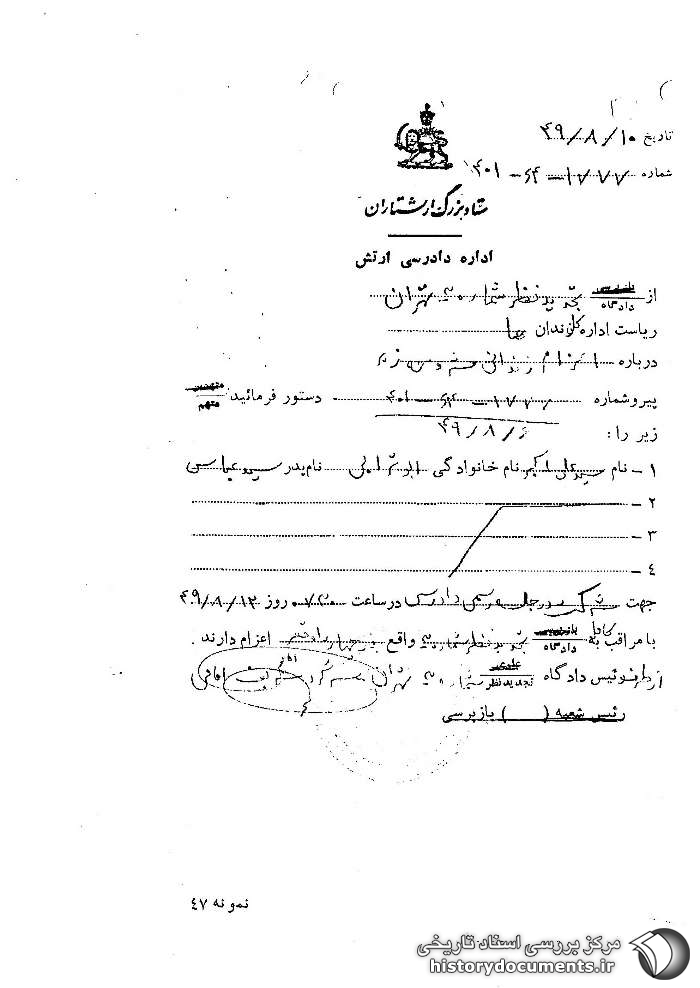 تاریخ ۴۹/۸/۱۰
شماره ۱۷۷۷ - ۶۴ - ۴۰۱
ستاد بزرگ ارتشتاران
اداره دادرسی ارتش
از دادگاه تجدید نظر شماره تهران
ریاست اداره زندان
درباره اعزام زندانی مشروحه زیر
پیرو شماره ۴۰۱ - ۶۴ - دستور فرمائید متهم
زیر را: ۴۹/۸/
۱ - نام سیدعلی اکبر نام خانوادگی ابوترابی نام پدر سیدعباس
۲ -
۳ -
۴ -
جهت شرکت در جلسه رسمی دادرسی در ساعت ۰۷۳۰ روز ۴۹/۸/۱۲
با مراقب کامل به دادگاه تجدیدنظر شماره واقع در چهارراه قصر اعزام دارند .
از طرف رئیس دادگاه تجدید نظر شماره تهران
رئیس شعبه ( ) بازپرسی
نمونه ۴۷
مرکز بررسی اسناد تاریخی
historydocuments.ir